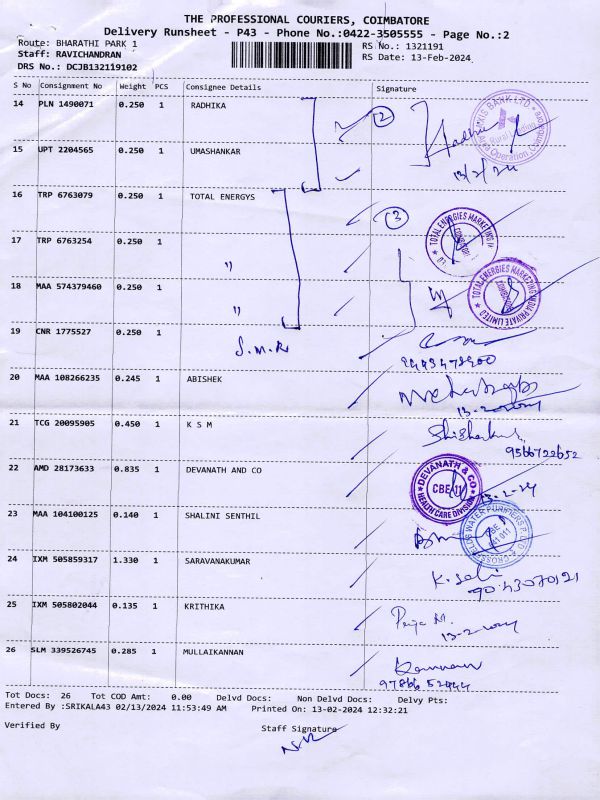 THE PROFESSIONAL COURIERS, COIMBATORE
Delivery Runsheet - P43 - Phone No.:0422-3505555 - Page No.:2
Route: BHARATHI PARK 1
RS No.: 1321191
Staff: RAVICHANDRAN
RS Date: 13-Feb-2024
DRS No.: DCJB132119102
S No Consignment No Weight PCS Consignee Details Signature
14 PLN 1490071 0.250 1 RADHIKA ②
13/2/24
15 UPT 2204565 0.250 1 UMASHANKAR
16 TRP 6763079 0.250 1 TOTAL ENERGYS ③
TOTAL ENERGIES MARKETING
17 TRP 6763254 0.250 1 "
TOTAL ENERGIES MARKETING INDIA PRIVATE LIMITED
18 MAA 574379460 0.250 1 "
19 CNR 1775527 0.250 1 S.M.R
20 MAA 108266235 0.245 1 ABISHEK
21 TCG 20095905 0.450 1 K S M
9566722652
22 AMD 28173633 0.835 1 DEVANATH AND CO
DEVANATH & CO
CBE-11
HEALTH CARE DIVISION
13-2-24
23 MAA 104100125 0.140 1 SHALINI SENTHIL
24 IXM 505859317 1.330 1 SARAVANAKUMAR
9043070121
25 IXM 505802044 0.135 1 KRITHIKA
Priya M.
26 SLM 339526745 0.285 1 MULLAIKANNAN
Tot Docs: 26 Tot COD Amt: 0.00 Delvd Docs: Non Delvd Docs: Delvy Pts:
Entered By :SRIKALA43 02/13/2024 11:53:49 AM Printed On: 13-02-2024 12:32:21
Verified By Staff Signature